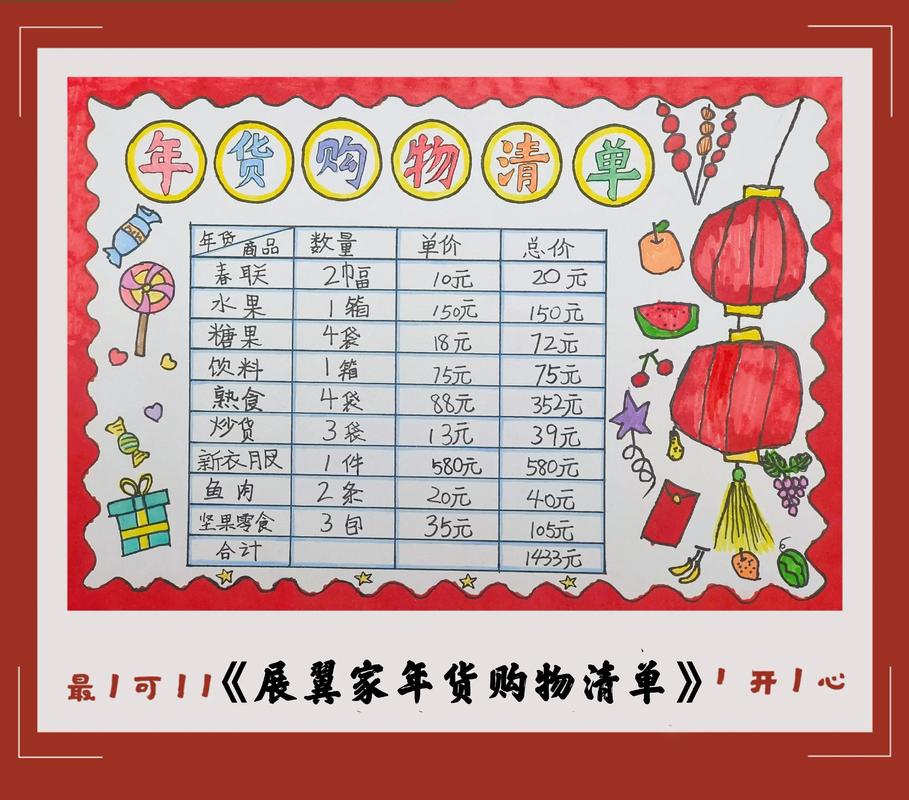 年货购物清单
年货 商品 数量 单价 总价
春联 2巾福 10元 20元
水果 1箱 150元 150元
糖果 4袋 18元 72元
饮料 1箱 75元 75元
熟食 4袋 88元 352元
炒货 3袋 13元 39元
新衣月服 1件 580元 580元
鱼肉 2条 20元 40元
坚果零食 3包 35元 105元
合计 1433元
最 可 《展翼家年货购物清单》 开 心